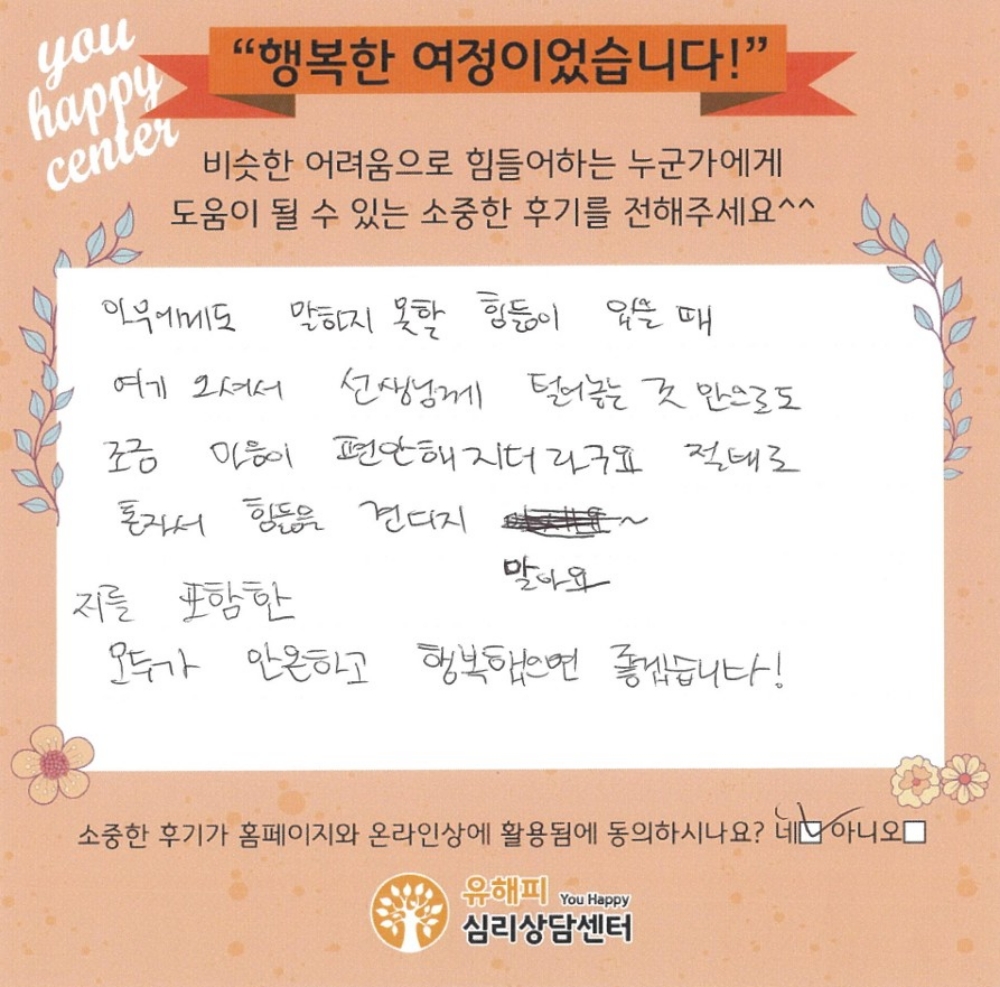 you
happy
center
“행복한 여정이었습니다!”
비슷한 어려움으로 힘들어하는 누군가에게
도움이 될 수 있는 소중한 후기를 전해주세요^^
아무에게도 말하지 못할 힘듦이 있을 때
여기 오셔서 선생님께 털어놓는 것 만으로도
조금 마음이 편안해지더라구요 절대로
혼자서 힘듦을 견디지 ~
말아요
저를 포함한
모두가 안온하고 행복했으면 좋겠습니다!
소중한 후기가 홈페이지와 온라인상에 활용됨에 동의하시나요? 네 아니오
유해피 You Happy
심리상담센터